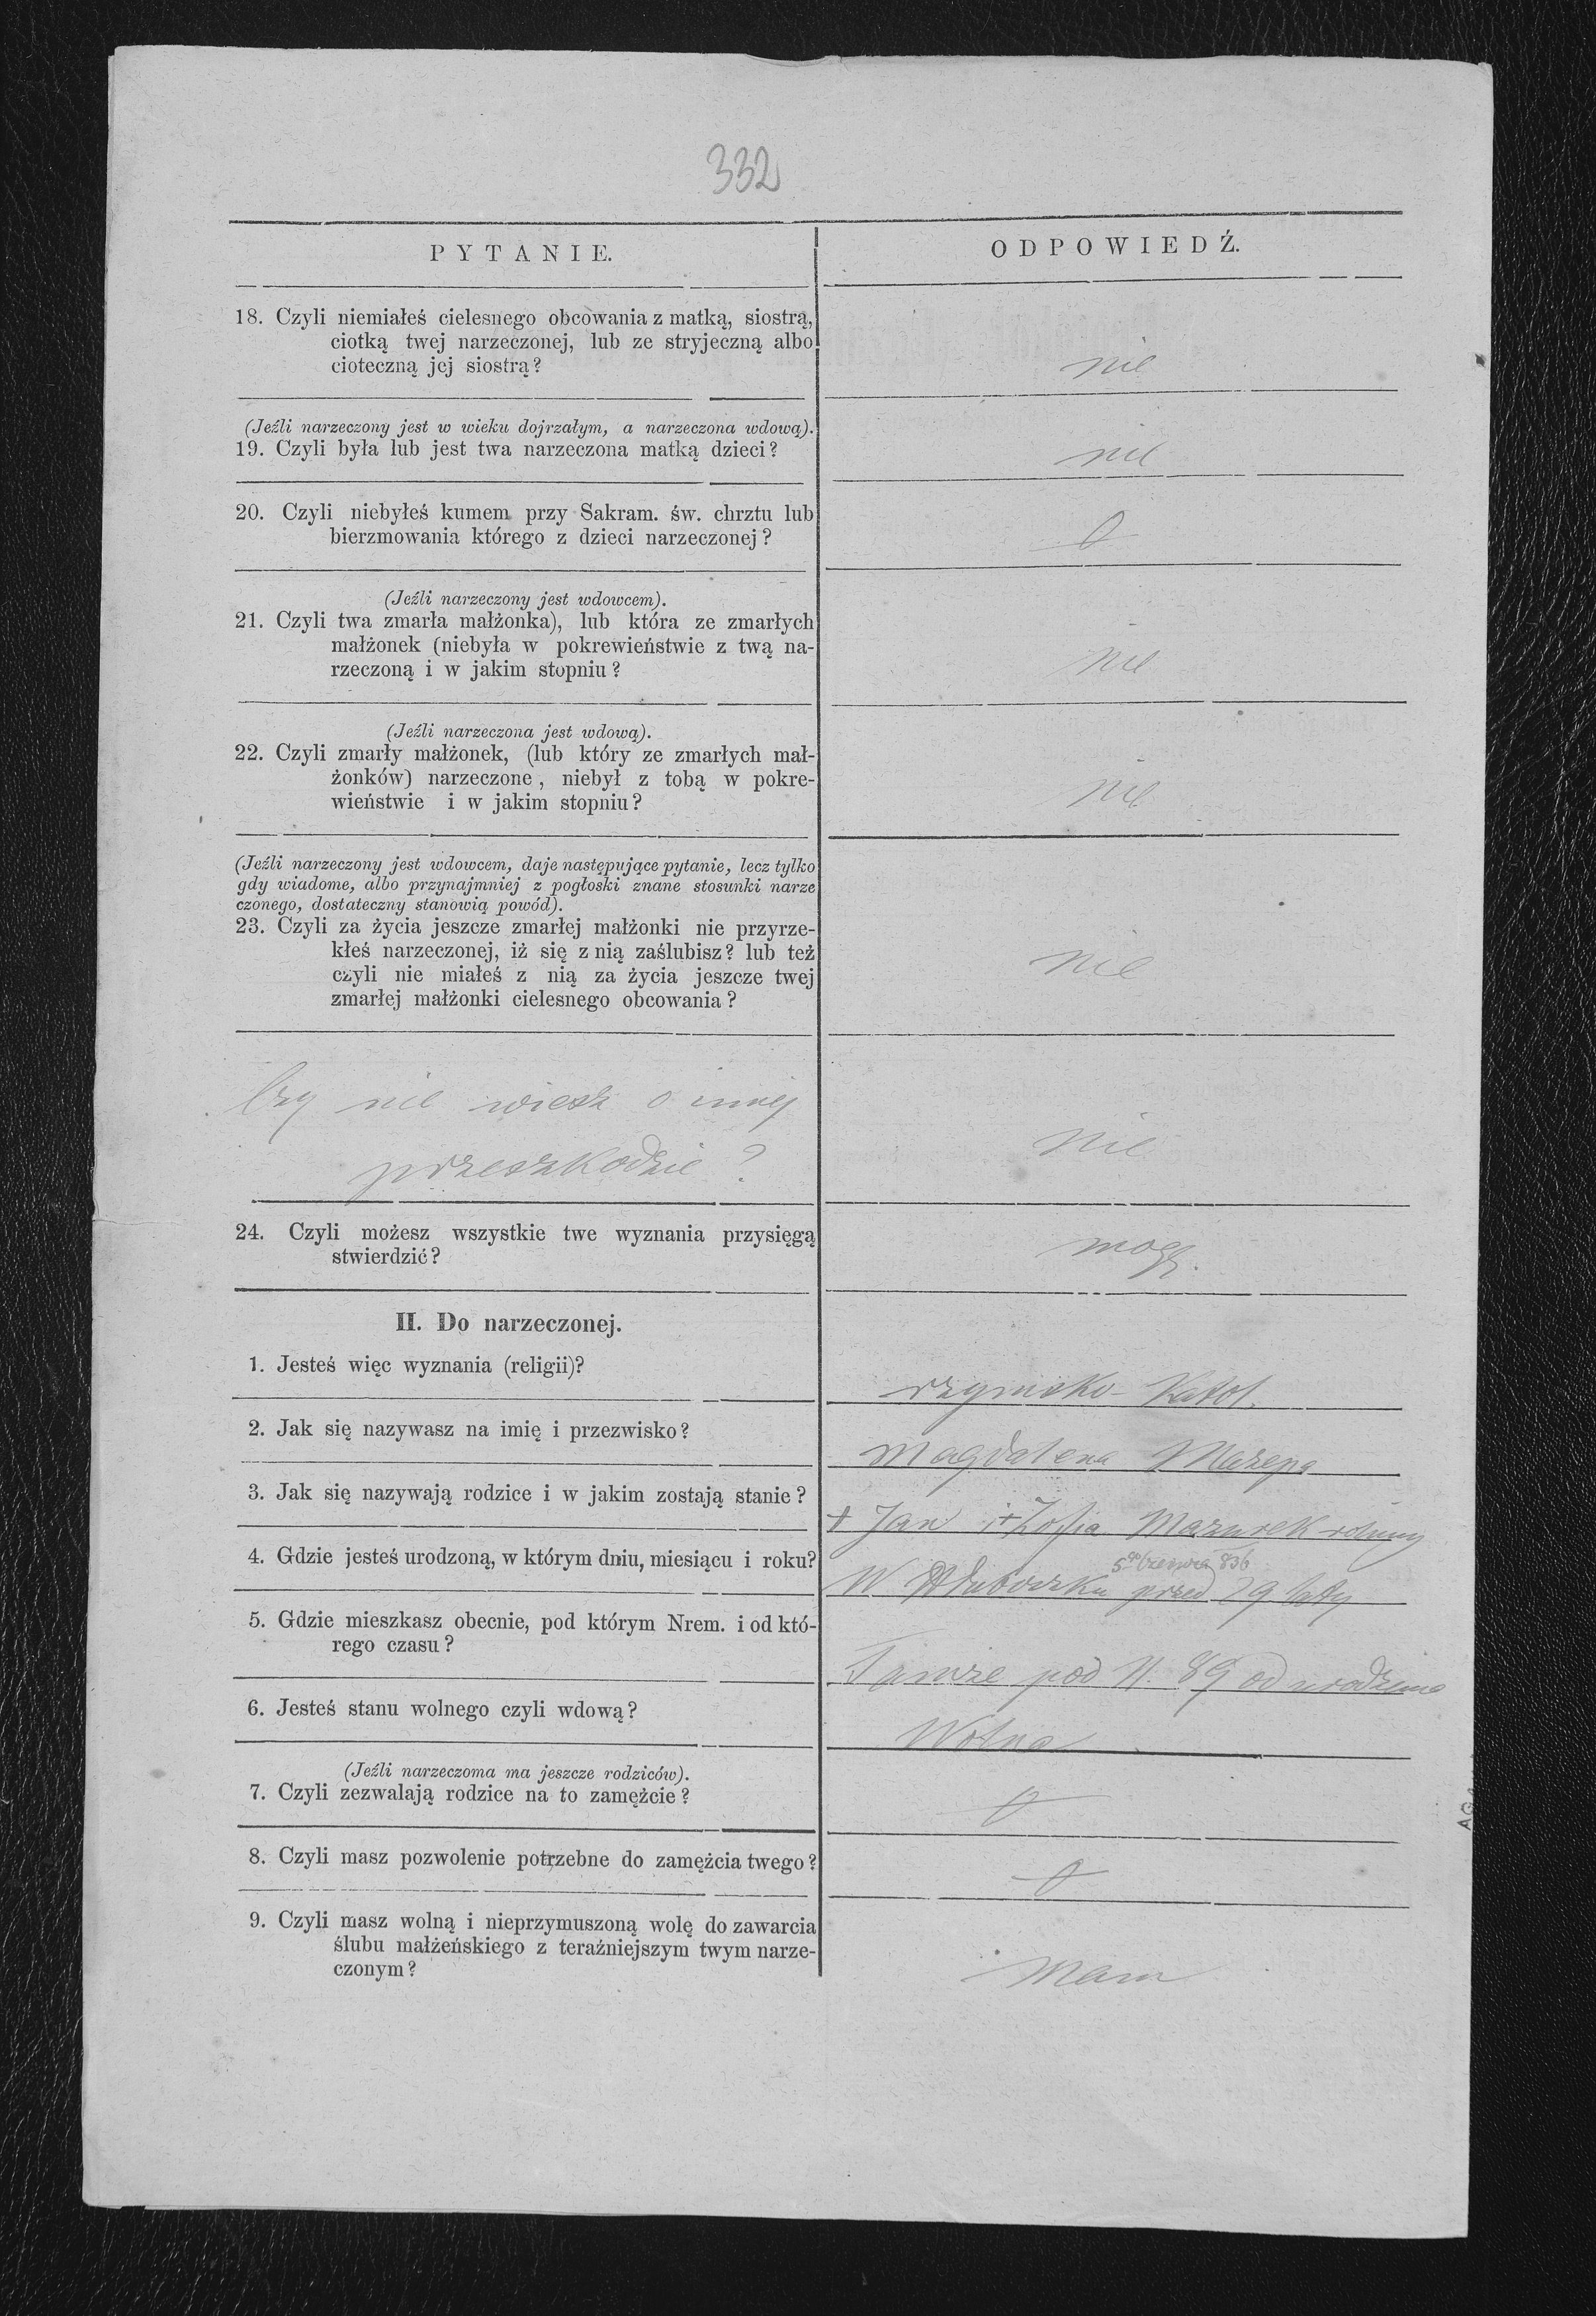 332
PYTANIE.
ODPOWIEDŹ.
18. Czyli niemiałeś cielesnego obcowania z matką, siostrą,
ciotką twej narzeczonej, lub ze stryjeczną albo
cioteczną jej siostrą?
nie
(Jeźli narzeczony jest w wieku dojrzałym, a narzeczona wdową).
19. Czyli była lub jest twa narzeczona matką dzieci?
nie
20. Czyli niebyłeś kumem przy Sakram. św. chrztu lub
bierzmowania którego z dzieci narzeczonej?
(Jeźli narzeczony jest wdowcem).
21. Czyli twa zmarła małżonka), lub która ze zmarłych
małżonek (niebyła w pokrewieństwie z twą na-
rzeczoną i w jakim stopniu?
nie
(Jeźli narzeczona jest wdową).
22. Czyli zmarły małżonek, (lub który ze zmarłych mał-
żonków) narzeczone, niebył z tobą w pokre-
wieństwie i w jakim stopniu?
nie
(Jeźli narzeczony jest wdowcem, daje następujące pytanie, lecz tylko
gdy wiadome, albo przynajmniej z pogłoski znane stosunki narze
czonego, dostateczny stanowią powód).
23. Czyli za życia jeszcze zmarłej małżonki nie przyrze-
kłeś narzeczonej, iż się z nią zaślubisz? lub też
czyli nie miałeś z nią za życia jeszcze twej
zmarłej małżonki cielesnego obcowania?
nie
Czy nie wiesz o innej
przeszkodzie?
nie
24. Czyli możesz wszystkie twe wyznania przysięgą
stwierdzić?
mogę.
II. Do narzeczonej.
1. Jesteś więc wyznania (religii)?
rzymsko-Katol.
2. Jak się nazywasz na imię i przezwisko?
Magdalena
3. Jak się nazywają rodzice i w jakim zostają stanie?
+ Jan i + Zofia Mazurek
4. Gdzie jesteś urodzoną, w którym dniu, miesiącu i roku?
836
W przed 29 laty
5. Gdzie mieszkasz obecnie, pod którym Nrem. i od któ-
rego czasu?
Tamże pod N. 89 od urodzenia
6. Jesteś stanu wolnego czyli wdową?
Wolna
(Jeźli narzeczoma ma jeszcze rodziców).
7. Czyli zezwalają rodzice na to zamężcie?
8. Czyli masz pozwolenie potrzebne do zamężcia twego?
9. Czyli masz wolną i nieprzymuszoną wolę do zawarcia
ślubu małżeńskiego z teraźniejszym twym narze-
czonym?
Mam